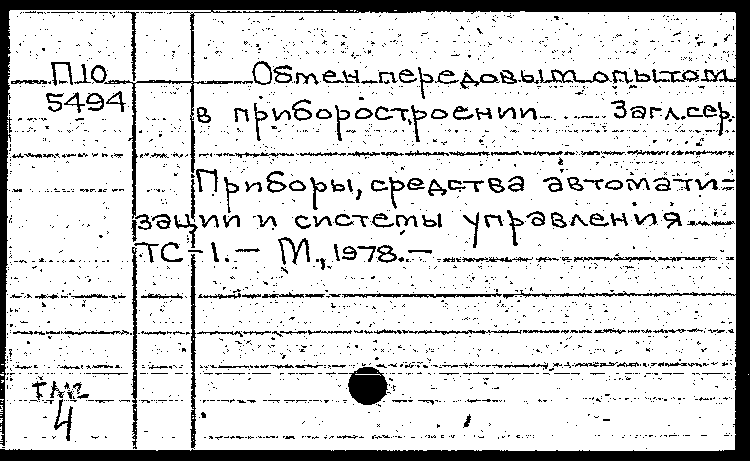 П10
5494
Обмен передовым опытом
в приборостроении Загл.сер.
Приборы, средства автомати-
зации и системы управления
ТС-1.— М., 1978.—
4